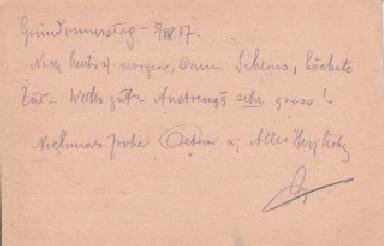 Gründonnerstag – 5/IV 17.
Noch heute u. morgen, dann Schluss, höchste
Zeit – Wetter gut – Anstrengg sehr gross!
Nochmals frohe Ostern u. Alles Herzliche